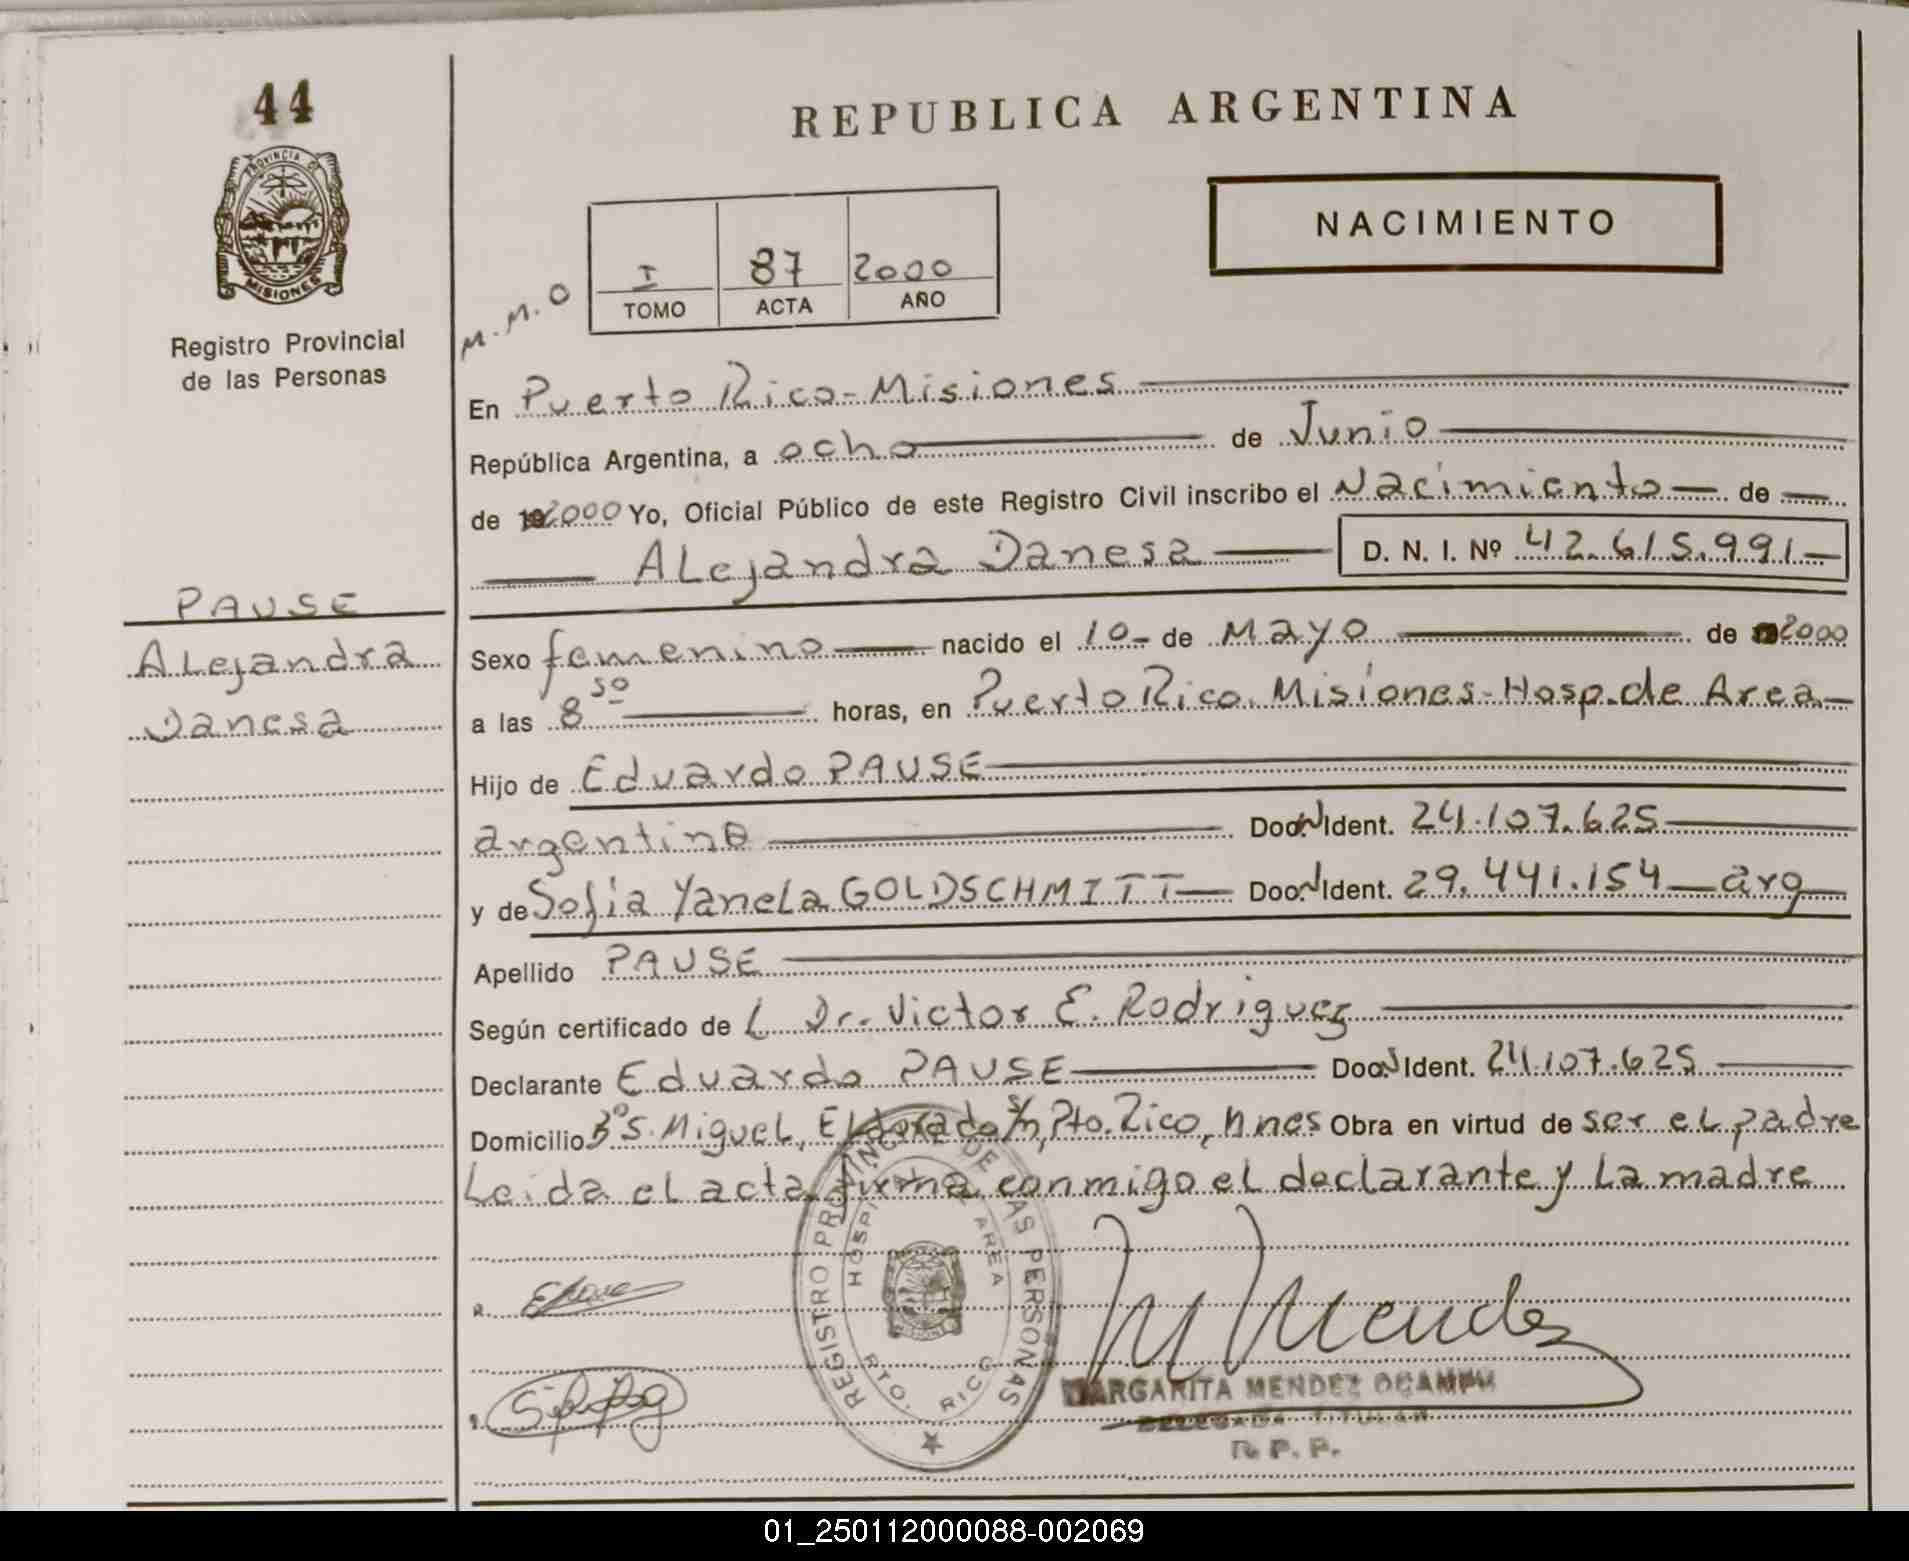 44
PROVINCIA DE
MISIONES
Registro Provincial
de las Personas
PAUSE
Alejandra
Danesa
REPUBLICA ARGENTINA
NACIMIENTO
I 87 2000
TOMO ACTA AÑO
M.M.O
En Puerto Rico-Misiones
República Argentina, a ocho de Junio
de 2000 Yo, Oficial Público de este Registro Civil inscribo el Nacimiento de
Alejandra Danesa D. N. I. Nº 42.615.991
Sexo femenino nacido el 10 de Mayo de 2000
a las 8 50 horas, en Puerto Rico. Misiones-Hosp.de Area
Hijo de Eduardo PAUSE
argentino Doc.N Ident. 24.107.625
y de Sofia Yanela GOLDSCHMITT Doc.N Ident. 29.441.154 arg
Apellido PAUSE
Según certificado de L Dr. Victor E. Rodriguez
Declarante Eduardo PAUSE Doc.N Ident. 24.107.625
Domicilio Bº S. Miguel, Eldorado s/n, Pto. Rico, Mnes Obra en virtud de ser el padre
Leida el acta, firma conmigo el declarante y La madre
REGISTRO PROVINCIAL DE LAS PERSONAS
HOSPITAL DE AREA
PTO. RICO
MISIONES
M Mendez
MARGARITA MENDEZ OCAMPO
DELEGADA TITULAR
R. P. P.
01_250112000088-002069